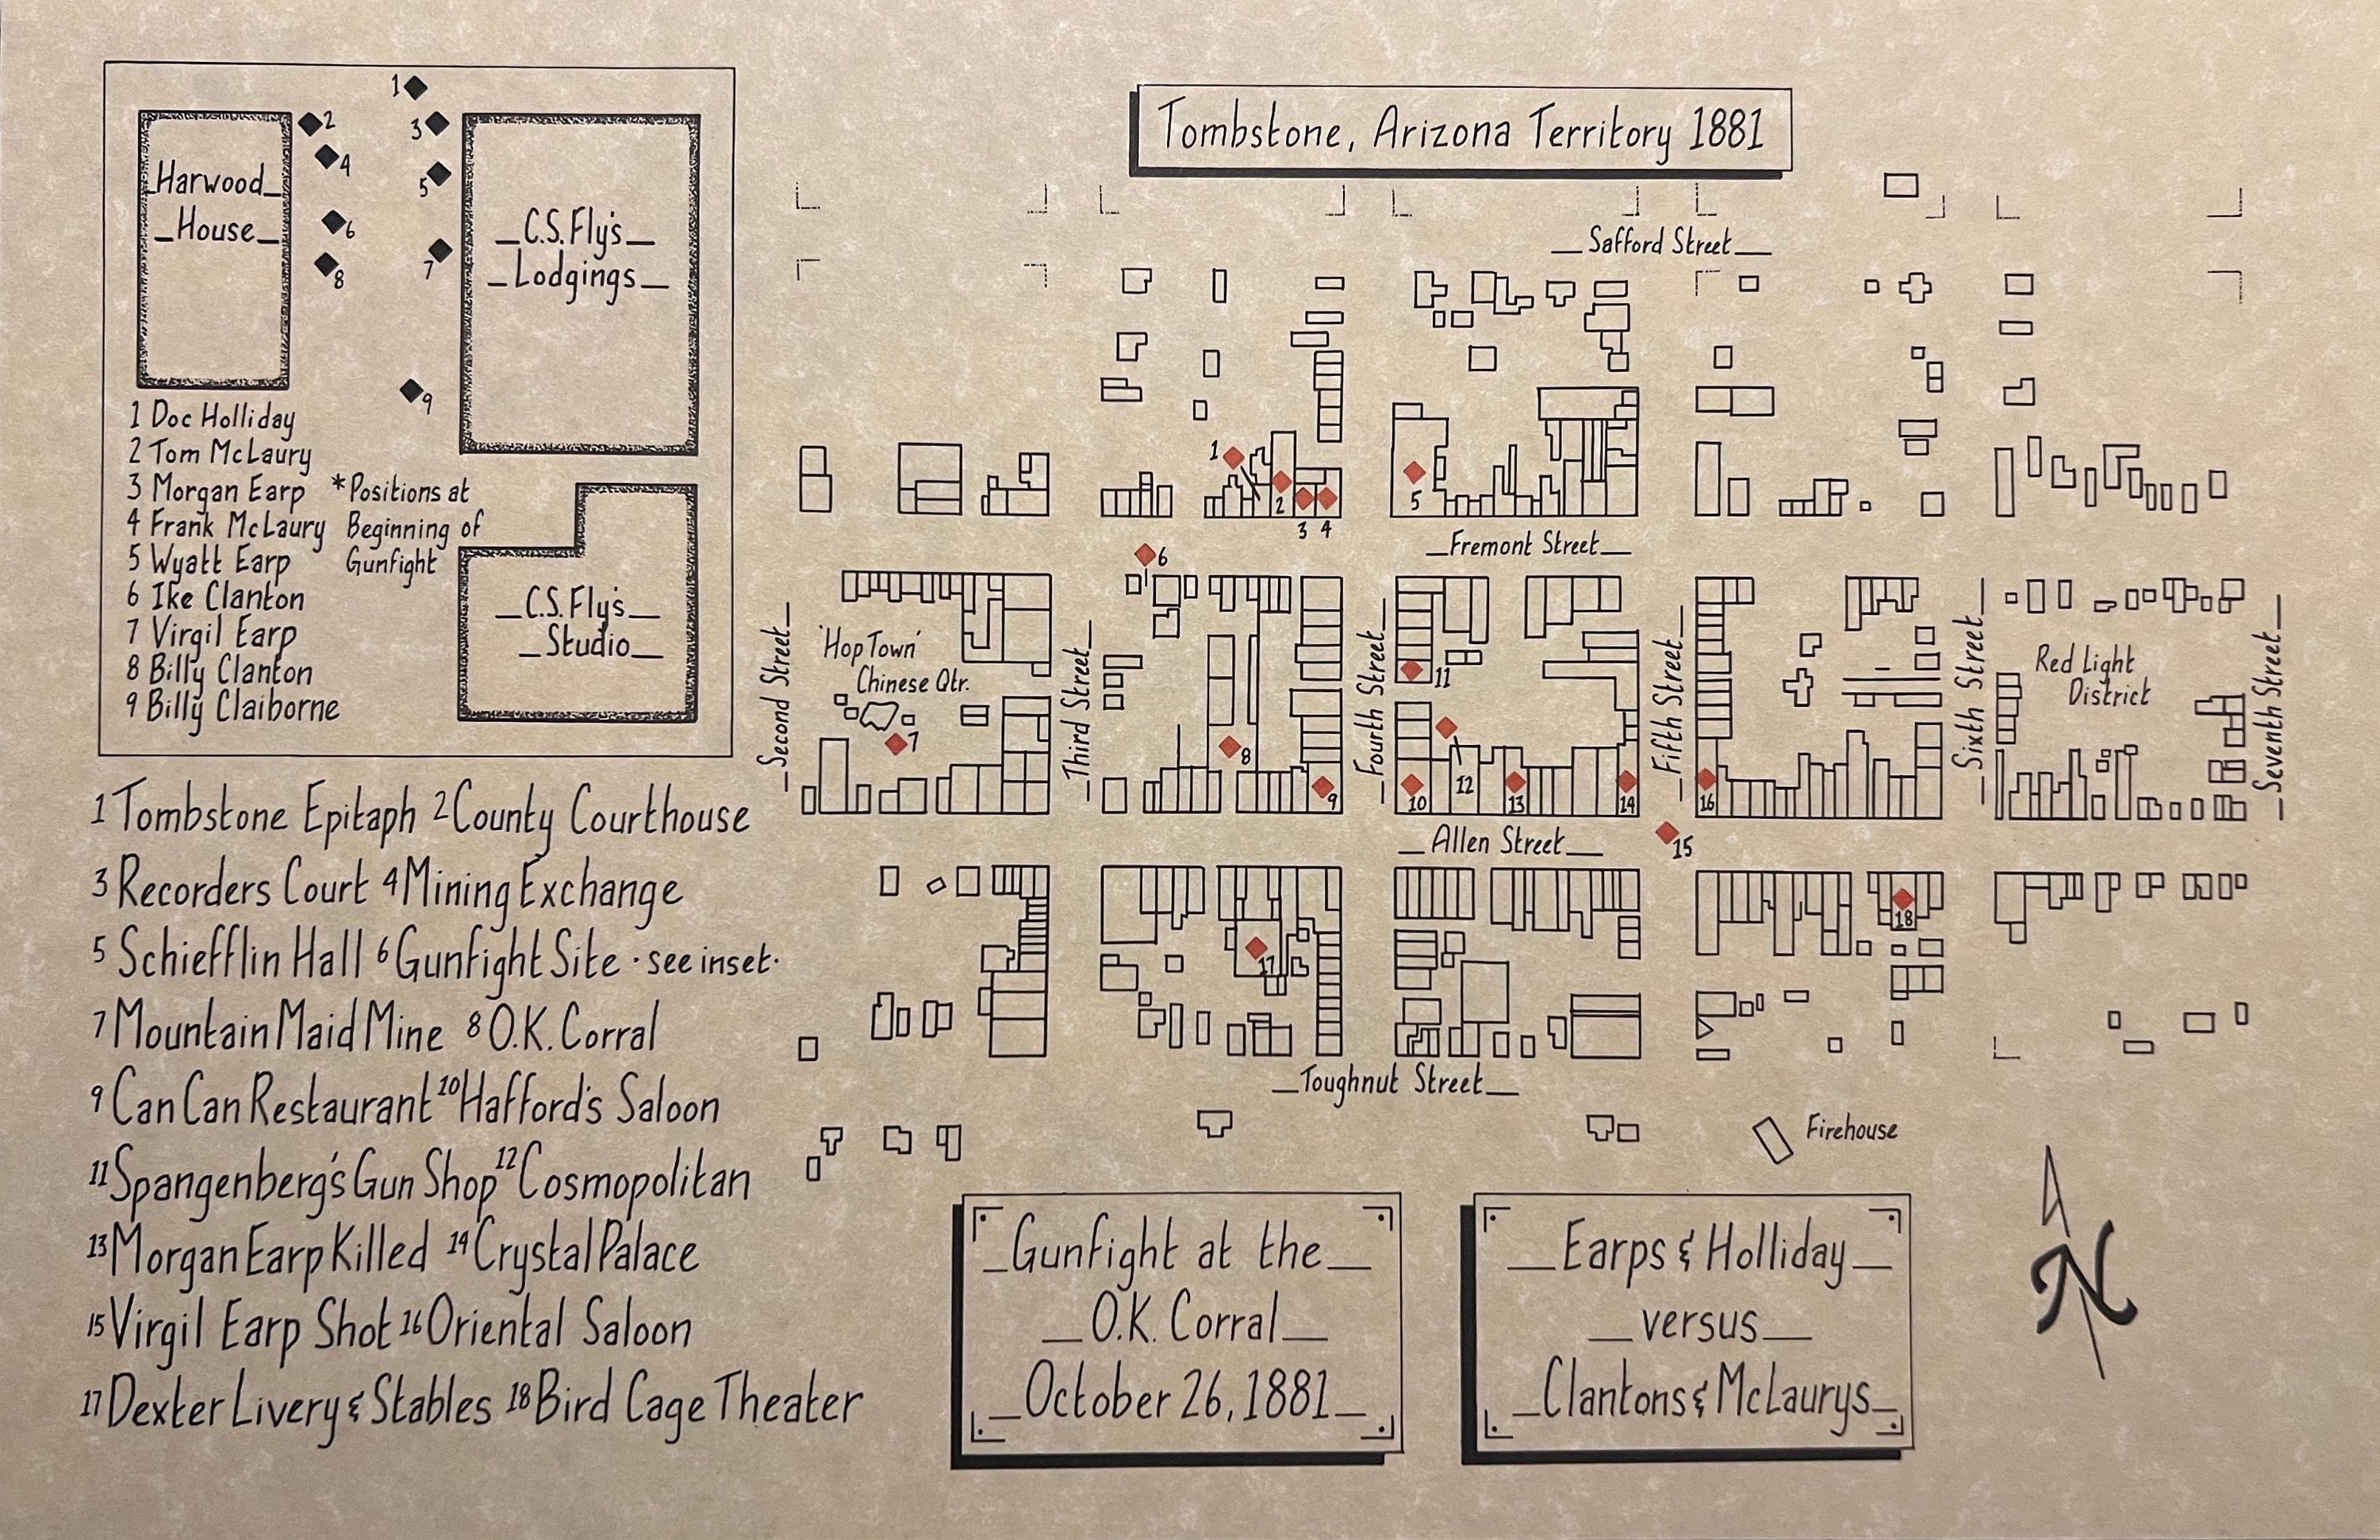 Tombstone, Arizona Territory 1881
1
2
3
4
5
6
7
8
9
_Harwood_
_House_
_C.S.Fly's_
_Lodgings_
_C.S.Fly's_
_Studio_
1 Doc Holliday
2 Tom McLaury
3 Morgan Earp
4 Frank McLaury
5 Wyatt Earp
6 Ike Clanton
7 Virgil Earp
8 Billy Clanton
9 Billy Claiborne
*Positions at
Beginning of
Gunfight
1 Tombstone Epitaph 2 County Courthouse
3 Recorders Court 4 Mining Exchange
5 Schiefflin Hall 6 Gunfight Site · see inset·
7 Mountain Maid Mine 8 O.K. Corral
9 Can Can Restaurant 10 Hafford's Saloon
11 Spangenberg's Gun Shop 12 Cosmopolitan
13 Morgan Earp Killed 14 Crystal Palace
15 Virgil Earp Shot 16 Oriental Saloon
17 Dexter Livery & Stables 18 Bird Cage Theater
_Safford Street_
1
2
3
4
5
_Fremont Street_
6
_Second Street_
'Hop Town'
Chinese Qtr.
7
_Third Street_
8
9
_Fourth Street_
11
10
12
13
14
_Fifth Street_
16
_Sixth Street_
Red Light
District
_Seventh Street_
_Allen Street_
15
17
18
_Toughnut Street_
Firehouse
_Gunfight at the_
_O.K. Corral_
_October 26, 1881_
_Earps & Holliday_
_versus_
_Clantons & McLaurys_
N